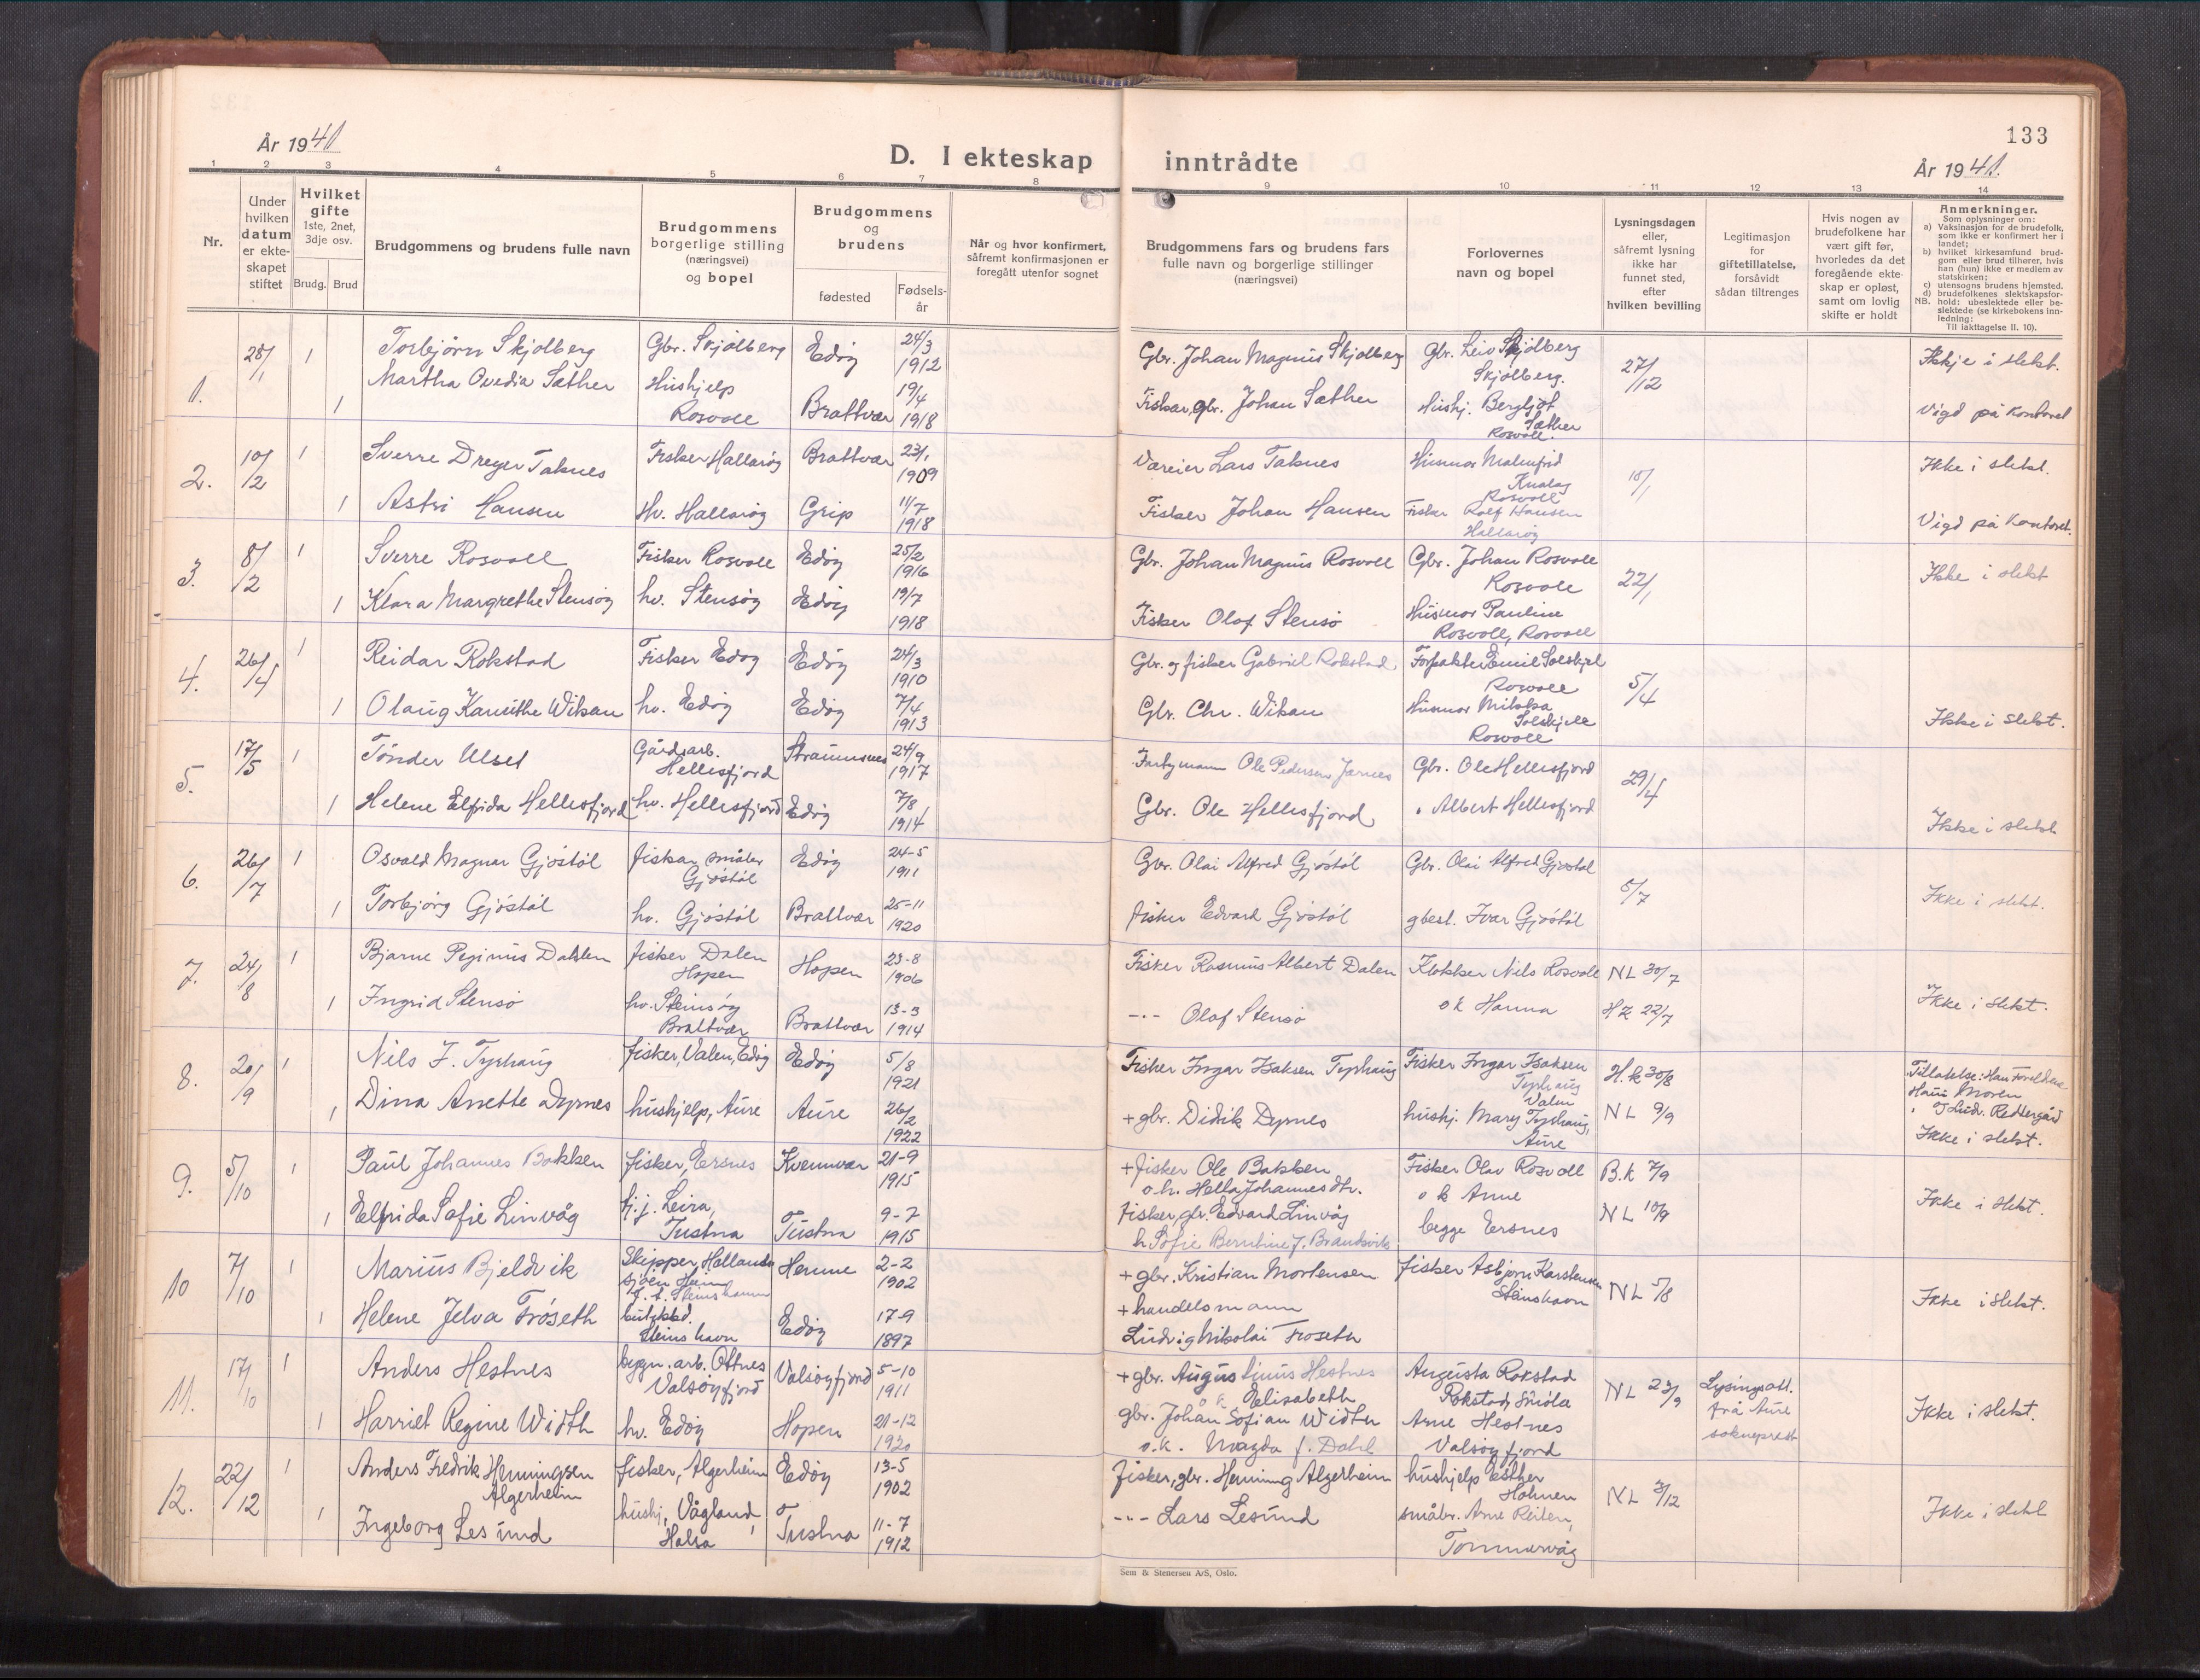 133
År 1941
D. I ekteskap inntrådte
År 1941.
1 2 3 4 5 6 7 8 9 10 11 12 13 14
Nr.
Under hvilken datum er ekteskapet stiftet
Hvilket gifte 1ste, 2net, 3dje osv.
Brudg. Brud
Brudgommens og brudens fulle navn
Brudgommens borgerlige stilling (næringsvei) og bopel
Brudgommens og brudens
fødested
Fødselsår
Når og hvor konfirmert, såfremt konfirmasjonen er foregått utenfor sognet
Brudgommens fars og brudens fars fulle navn og borgerlige stillinger (næringsvei)
Forlovernes navn og bopel
Lysningsdagen eller, såfremt lysning ikke har funnet sted, efter hvilken bevilling
Legitimasjon for giftetillatelse, forsåvidt sådan tiltrenges
Hvis nogen av brudefolkene har vært gift før, hvorledes da det foregående ekteskap er opløst, samt om lovlig skifte er holdt
Anmerkninger.
Som oplysninger om:
a) Vaksinasjon for de brudefolk, som ikke er konfirmert her i landet;
b) hvilket kirkesamfund brudgom eller brud tilhører, hvis han (hun) ikke er medlem av statskirken;
c) utensogns brudens hjemsted.
d) brudefolkenes slektskapsforhold: ubeslektede eller beslektede (se kirkebokens innledning:
NB. Til iakttagelse II. 10).
1. 28/1 1 Torbjörn Skjölberg Gbr. Skjölberg Edöy 24/3 1912 Gbr. Johan Magnus Skjölberg Gbr. Leiv Skjölberg Skjölberg. 27/12 Ikkje i slekt.
1 Martha Ovedia Sæther Hushjelp Rosvoll Brattvær 19/4 1918 Fisker, gbr. Johan Sæther Hushj. Bergljot Sæther Rosvoll. Vigd på kontoret
2. 10/2 1 Sverre Dreyer Taknes Fisker Hallaröy Brattvær 23/1 1909 Væreier Lars Taknes Husmor Malmfrid Knalag Rosvoll 18/1 Ikke i slekt.
1 Astri Hansen Hv. Hallaröy Grip 11/7 1918 Fisker Johan Hansen Fisker Rolf Hansen Hallaröy Vigd på kontoret.
3. 8/2 1 Sverre Rosvoll Fisker Rosvoll Edöy 25/2 1916 Gbr. Johan Magnus Rosvoll Gbr. Johan Rosvoll Rosvoll 22/1 Ikke i slekt
1 Klara Margrethe Stensöy hv. Stensöy Edöy 19/7 1918 Fisker Olaf Stensö Husmor Pauline Rosvoll, Rosvoll
4. 26/4 1 Reidar Rokstad Fisker Edöy Edöy 24/3 1910 Gbr. og fisker Gabriel Rokstad Forpakter Emil Solskjel Rosvoll 5/4
1 Olaug Kamithe Wikan hv. Edöy Edöy 7/4 1913 Gbr. Chr. Wikan Husmor Milska Solskjell Rosvoll Ikke i slekt.
5. 17/5 1 Tönder Ulset Gårdsarb. Hellesfjord Straumsnes 24/9 1917 Ole Pedersen Jarnes Gbr. Ole Hellesfjord 29/4
1 Helene Elfrida Hellesfjord hv. Hellesfjord Edöy 7/8 1914 Gbr. Ole Hellesfjord " Albert Hellesfjord Ikke i slekt
6. 26/7 1 Osvald Magnar Gjöstöl fisker, Gjöstöl Edöy 24-5 1911 Gbr. Olai Alfred Gjöstöl Gbr. Olai Alfred Gjöstöl 5/7
1 Torbjörg Gjöstöl hv. Gjöstöl Brattvær 25-11 1920 fisker Edvard Gjöstöl gbest. Ivar Gjöstöl Ikke i slekt.
7. 24/8 1 Bjarne Peginius Dahlen fisker Dalen Hopen Hopen 23-8 1906 Fisker Rasmus Albert Dalen Klokker Nils Rosvoll NL 30/7
1 Ingrid Stensö hv. Steinsöy Brattvær Brattvær 13-3 1914 -"- Olaf Stensö o k Hanna HK 22/7 Ikke i slekt.
8. 20/9 1 Nils J. Typhaug fisker, Valen, Edöy Edöy 5/8 1921 Fisker Ingar Isaksen Typhaug Fisker Ingar Isaksen Typhaug Valen H.k 30/8 Tillatelse:
1 Dina Anette Dyrnes hushjelp, Aure Aure 26/2 1922 + gbr. Didrik Dyrnes hushj. Mary Typhaug, Aure NL 9/9 Ikke i slekt.
9. 5/10 1 Paul Johannes Bakken fisker, Ersnes Kvennvær 21-9 1915 + fisker Ole Bakken o.h. Hella Johannesdtr. Fisker Olav Rosvoll B.k 7/9
1 Elfrida Sofie Linvåg hj. Leira, Tustna Tustna 9-7 1915 fisker, gbr. Edvard Linvåg h. Sofie Berntine f. Brandsvik o k Anne begge Ersnes NL 10/9 Ikke i slekt.
10 7/10 1 Marius Bjeldvik Skipper, Hemne 2-2 1902 + gbr. Kristian Mortensen fisker Asbjørn Karstensen Steinshavn NL 5/8
1 Helene Jelva Fröseth Steinshavn Edöy 17-9 1897 + handelsmann Ludvig Nikolai Froseth Ikke i slekt.
11. 17/10 1 Anders Hestnes bygn. arb. Ottnes Valsöyfjord Valsöyfjord 5-10 1911 + gbr. Augustinus Hestnes o k Elisabeth Augusta Rokstad Rokstad, Smöla NL 23/9 Lysingsatt. frå Aure sokneprest
1 Harriet Regine Width hv. Edöy Hopen 21-12 1920 gbr. Johan Sofian Width o.k. Magda f. Dahl Arne Hestnes Valsöyfjord Ikke i slekt.
12. 22/12 1 Anders Fredrik Henningsen Algerheim fisker, Algerheim Edöy 13-5 1902 fisker, gbr. Henning Algerheim hushjelp Esther Holmen NL 3/12
1 Ingeborg Lesund hushj, Vågland, Halsa Tustna 11-7 1912 -"- Lars Lesund småbr. Arne Reiten, Tömmervåg Ikke i slekt
Sem & Stenersen A/S, Oslo.